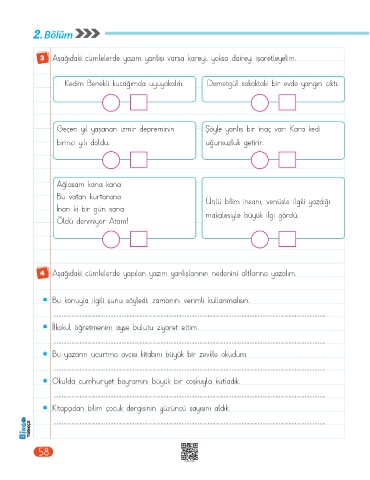 2. Bölüm
3 Aşağıdaki cümlelerde yazım yanlışı varsa kareyi, yoksa daireyi işaretleyelim.
Kedim Benekli kucağımda uyuyakaldı.
Demetgül sokaktaki bir evde yangın çıktı.
Geçen yıl yaşanan izmir depreminin
birinci yılı doldu.
Şöyle yanlış bir inaç var: Kara kedi
uğursuzluk getirir.
Ağlasam kana kana
Bu vatan kurtarana
İnan ki bir gün sana
Öldü denmiyor Atam!
Ünlü bilim insanı, venüsle ilgili yazdığı
makalesiyle büyük ilgi gördü.
4 Aşağıdaki cümlelerde yapılan yazım yanlışlarının nedenini altlarına yazalım.
Bu konuyla ilgili şunu söyledi: zamanını verimli kullanmalısın.
İlkokul öğretmenim ayşe bulutu ziyaret ettim.
Bu yazarın uçurtma avcısı kitabını büyük bir zevkle okudum.
Okulda cumhuriyet bayramını büyük bir coşkuyla kutladık.
Kitapçıdan bilim çocuk dergisinin yüzüncü sayısını aldık.
BİNGO
TÜRKÇE
58